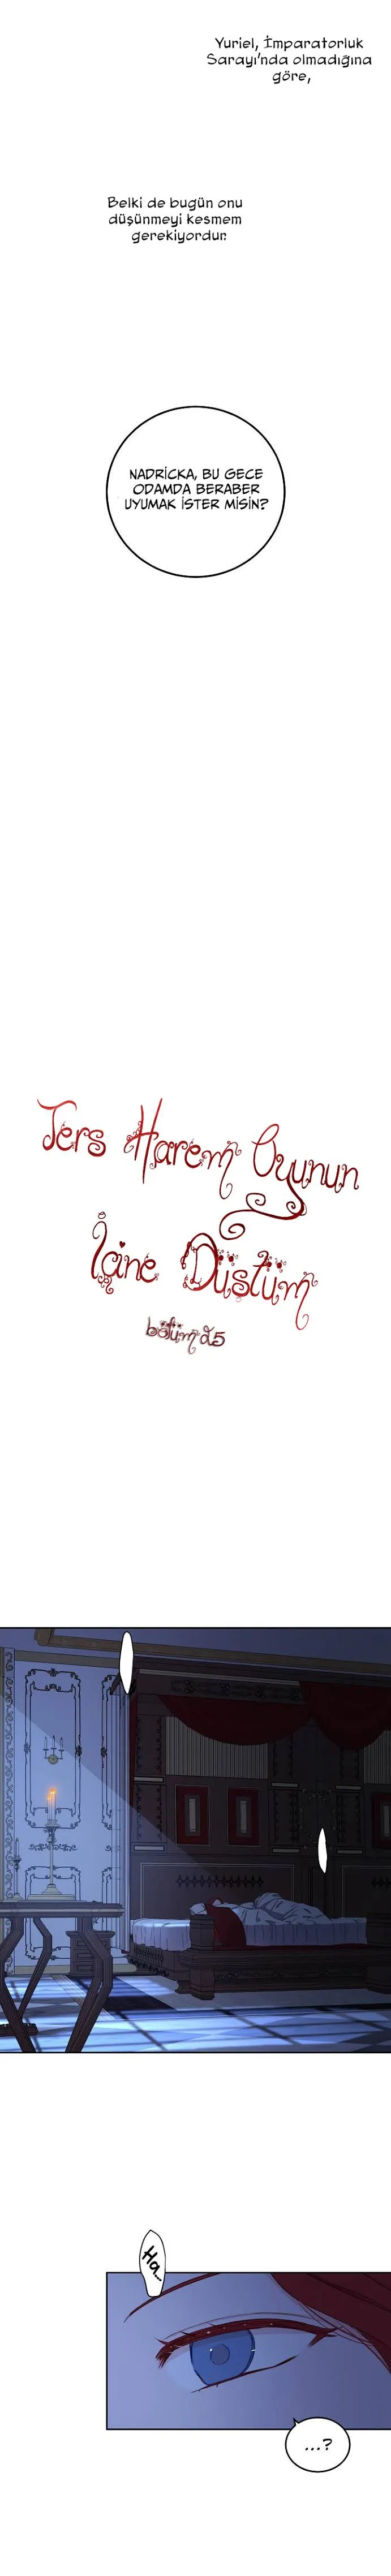 Yuriel, İmparatorluk
Sarayı'nda olmadığına
göre,
Belki de bugün onu
düşünmeyi kesmem
gerekiyordur.
NADRICKA, BU GECE
ODAMDA BERABER
UYUMAK İSTER MİSİN?
Ters Harem Oyunun
İçine Düştüm
bölüm 25
Ha...
...?